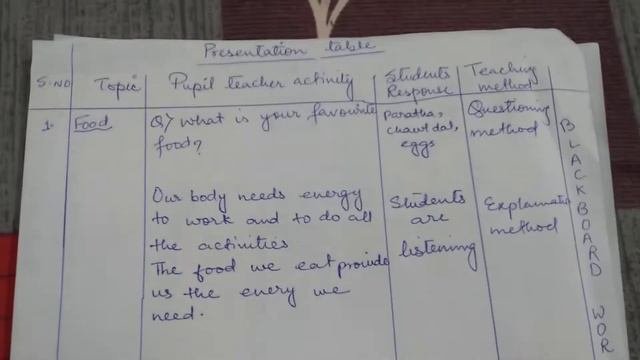 Presentation table
S.NO Topic Pupil teacher activity Students Response Teaching method
1. Food Q) What is your favourite food? Paratha, chawl dal, eggs Questioning method
Our body needs energy to work and to do all the activities Students are listening Explamatio method
The food we eat provide us the enery we need.
BLACKBOARD WOR